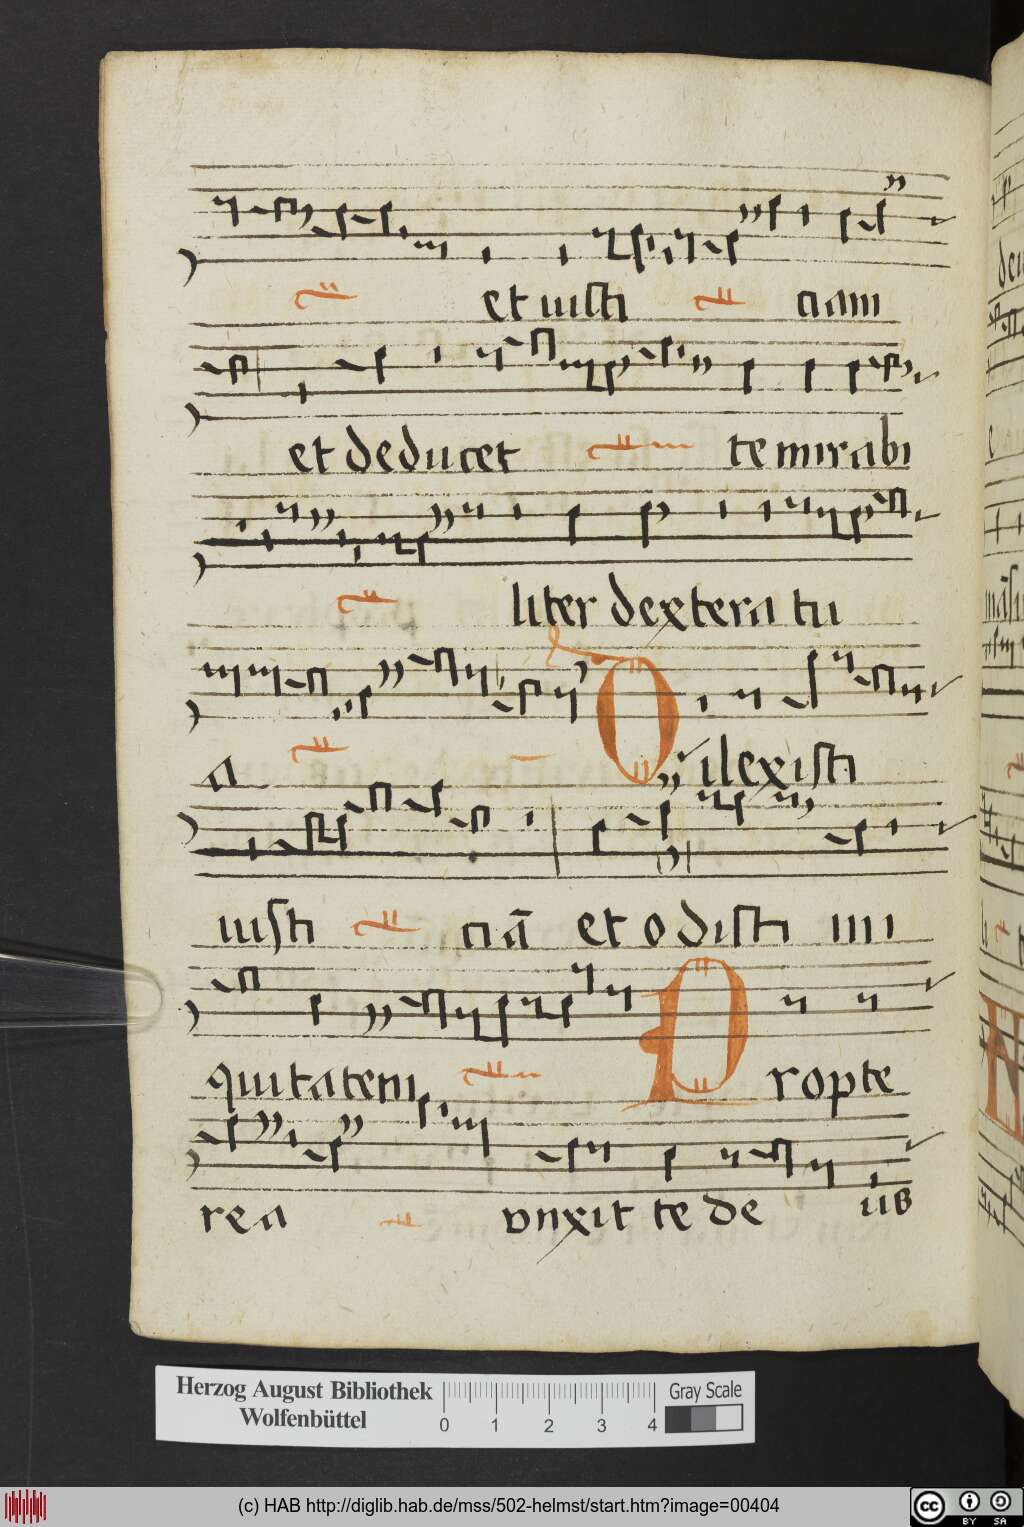 et iusti ciam
et deducet te mirabi
liter dextera tu
a Dilexisti
iusti ciā et odisti ini
quitatem Propte
rea vnxit te de us
Herzog August Bibliothek
Wolfenbüttel
0 1 2 3 4
Gray Scale
(c) HAB http://diglib.hab.de/mss/502-helmst/start.htm?image=00404
cc BY SA